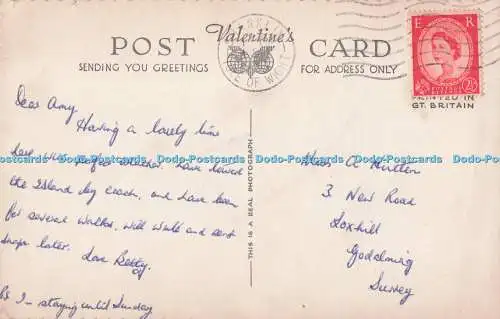 POST Valentine's CARD
SENDING YOU GREETINGS
FOR ADDRESS ONLY
ISLE OF WIGHT
E R
PRINTED IN
GT. BRITAIN
Dear Amy,
Having a lovely time
here with weather. Have toured
the Island by coach, and have been
for several walks. Will write and send
snaps later. Love Betty.
PS I - staying until Sunday
THIS IS A REAL PHOTOGRAPH
Miss A
3 New Road
Godalming
Surrey
Dodo-Postcards Dodo-Postcards Dodo-Postcards Dodo-Postcards Dodo-Postcards Dodo-Postcards